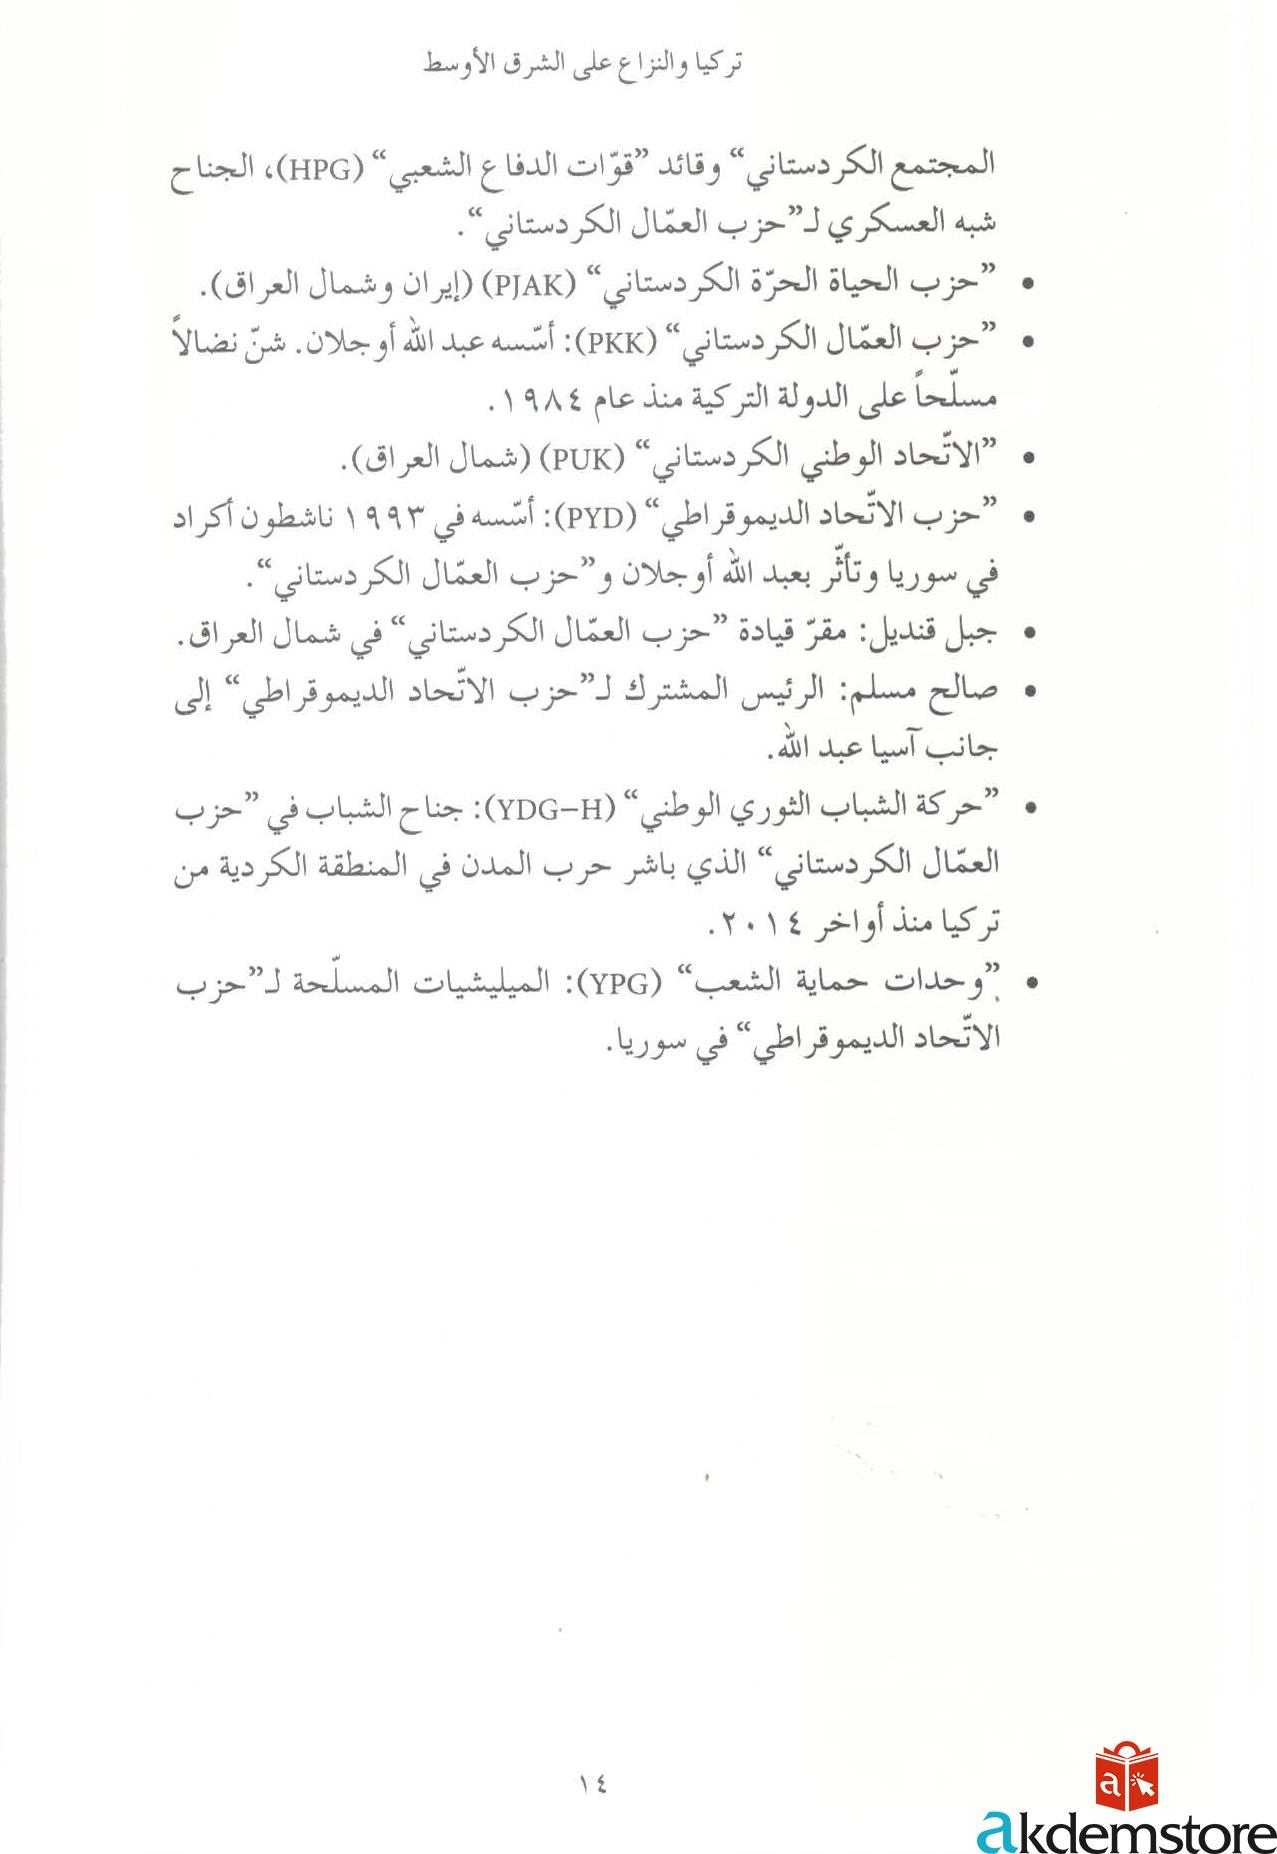 تركيا والنزاع على الشرق الأوسط
المجتمع الكردستاني“ وقائد ”قوّات الدفاع الشعبي“ (HPG)، الجناح
شبه العسكري لـ”حزب العمّال الكردستاني“.
• ”حزب الحياة الحرّة الكردستاني“ (PJAK) (إيران وشمال العراق).
• ”حزب العمّال الكردستاني“ (PKK): أسّسه عبد الله أوجلان. شنّ نضالاً
مسلّحاً على الدولة التركية منذ عام ١٩٨٤.
• ”الاتّحاد الوطني الكردستاني“ (PUK) (شمال العراق).
• ”حزب الاتّحاد الديموقراطي“ (PYD): أسّسه في ١٩٩٣ ناشطون أكراد
في سوريا وتأثّر بعبد الله أوجلان و”حزب العمّال الكردستاني“.
• جبل قنديل: مقرّ قيادة ”حزب العمّال الكردستاني“ في شمال العراق.
• صالح مسلم: الرئيس المشترك لـ”حزب الاتّحاد الديموقراطي“ إلى
جانب آسيا عبد الله.
• ”حركة الشباب الثوري الوطني“ (YDG–H): جناح الشباب في ”حزب
العمّال الكردستاني“ الذي باشر حرب المدن في المنطقة الكردية من
تركيا منذ أواخر ٢٠١٤.
• ”وحدات حماية الشعب“ (YPG): الميليشيات المسلّحة لـ”حزب
الاتّحاد الديموقراطي“ في سوريا.
١٤
a
akdemstore